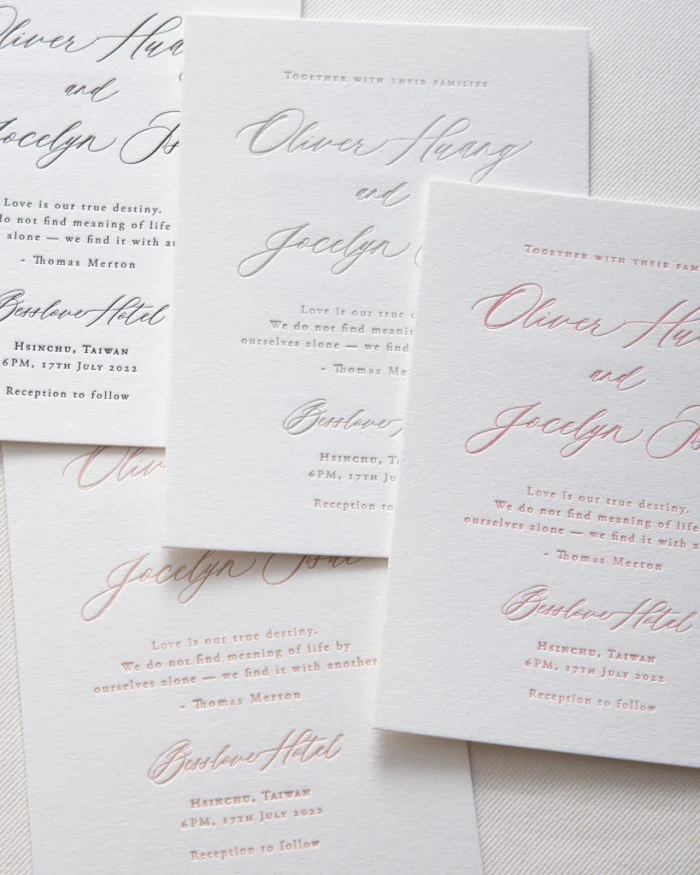 liver Hua
and
Jocelyn
Love is our true destiny.
do not find meaning of life
alone — we find it with a
- Thomas Merton
Besslove Hotel
Hsinchu, Taiwan
6PM, 17th July 2022
Reception to follow
Together with their families
Oliver Huang
and
Jocelyn
Love is our true
We do not find meani
ourselves alone — we find
- Thomas Me
Besslove
Hsinchu, T
6PM, 17th Ju
Reception to
Together with their fam
Oliver Hu
and
Jocelyn
Love is our true destiny.
We do not find meaning of life
ourselves alone — we find it with a
- Thomas Merton
Besslove Hotel
Hsinchu, Taiwan
6PM, 17th July 2022
Reception to follow
Oliv
Jocelyn
Love is our true destiny.
We do not find meaning of life by
ourselves alone — we find it with another
- Thomas Merton
Besslove Hotel
Hsinchu, Taiwan
6PM, 17th July 2022
Reception to follow